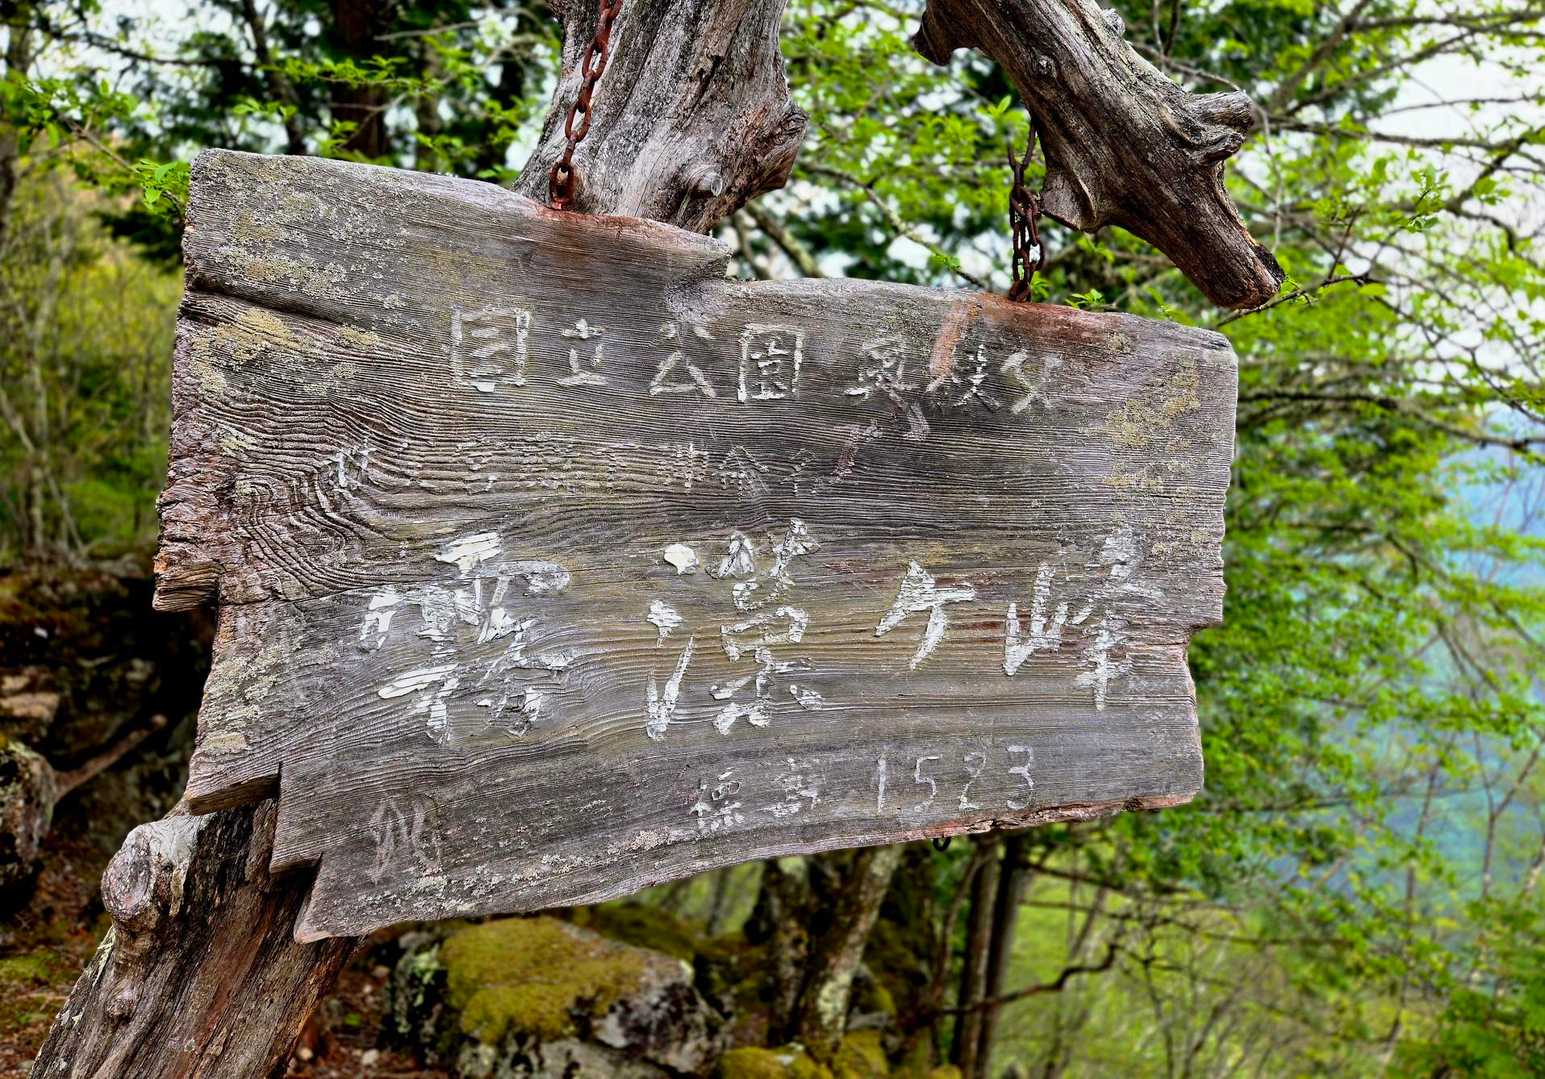 国立公園 奥秩父
霧藻ケ峰
標高 1523